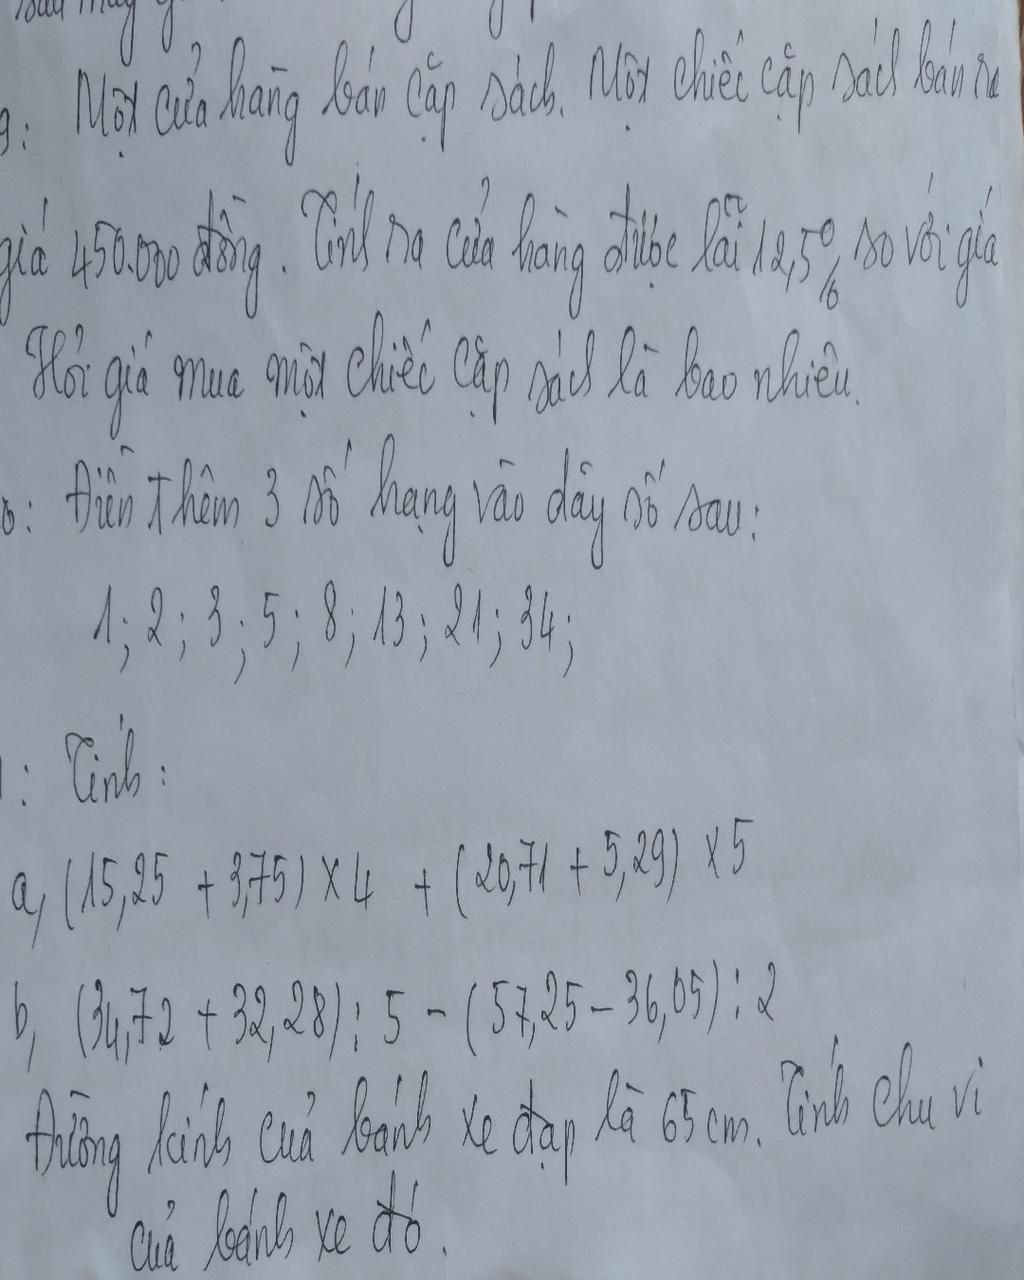 9: Một cửa hàng bán cặp sách. Một chiếc cặp sách bán ra
giá 450.000 đồng. Tính ra cửa hàng được lãi 12,5% so với giá
Hỏi giá mua một chiếc cặp sách là bao nhiêu.
0: Điền thêm 3 số hạng vào dãy số sau:
1; 2; 3; 5; 8; 13; 21; 34;
: Tính:
a, (15,25 + 3,75) x 4 + (20,71 + 5,29) x 5
b, (34,72 + 32,28) : 5 - (57,25 - 36,05) : 2
Đường kính của bánh xe đạp là 65 cm. Tính chu vi
của bánh xe đó.